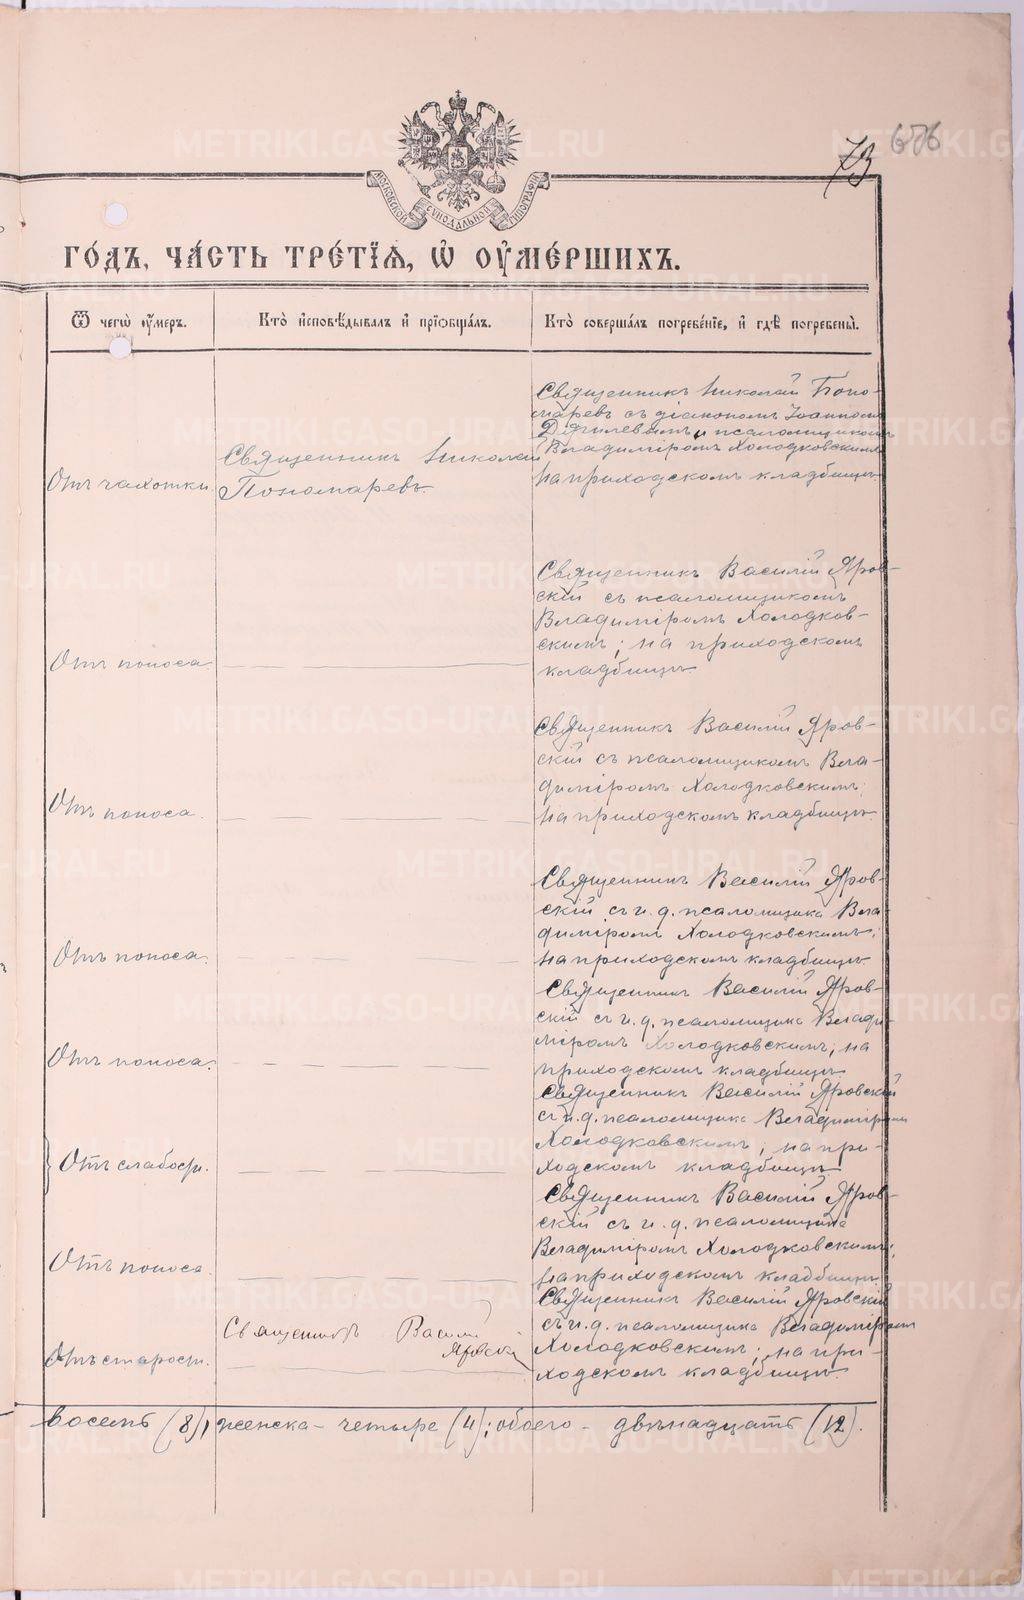 676
73
МОСКОВСКОЙ СѴНОДАЛЬНОЙ ТИПОГРАФІИ
ГО́ДЪ, ЧА́СТЬ ТРЕ́ТІѦ, Ѡ҆ ОУ҆МЕ́РШИХЪ.
Ѿ чегѡ̀ ᲂу҆́меръ.
Кто̀ и҆сповѣ́дывалъ и҆ прїѡбща́лъ.
Кто̀ соверша́лъ погребе́нїе, и҆ гдѣ̀ погребены̀.
Отъ чахотки.
Священникъ Николай
Пономаревъ.
Священникъ Николай Поно-
маревъ съ діакономъ Іоанномъ
Дягилевымъ и псаломщикомъ
Владиміромъ Холодковскимъ
На приходскомъ кладбищѣ.
Отъ поноса
Священникъ Василій Яров-
скій съ псаломщикомъ
Владиміромъ Холодков-
скимъ; на приходскомъ
кладбищѣ.
Отъ поноса.
Священникъ Василій Яров-
скій съ псаломщикомъ Вла-
диміромъ Холодковскимъ;
на приходскомъ кладбищѣ.
Отъ поноса.
Священникъ Василій Яров-
скій съ и. д. псаломщика Вла-
диміромъ Холодковскимъ;
на приходскомъ кладбищѣ.
Отъ поноса.
Священникъ Василій Яров-
скій съ и. д. псаломщика Влади-
міромъ Холодковскимъ; на
приходскомъ кладбищѣ
Отъ слабости.
Священникъ Василій Яровскій
съ и. д. псаломщика Владиміромъ
Холодковскимъ; на при-
ходскомъ кладбищѣ
Отъ поноса.
Священникъ Василій Яров-
скій съ и. д. псаломщика
Владиміромъ Холодковскимъ;
на приходскомъ кладбищѣ.
Отъ старости.
Священникъ Василій
Яровскій
Священникъ Василій Яровскій
съ и. д. псаломщика Владиміромъ
Холодковскимъ; на при-
ходскомъ кладбищѣ.
восемь (8), женска - четыре (4); обоего - двѣнадцать (12).
METRIKI.GASO-URAL.RU